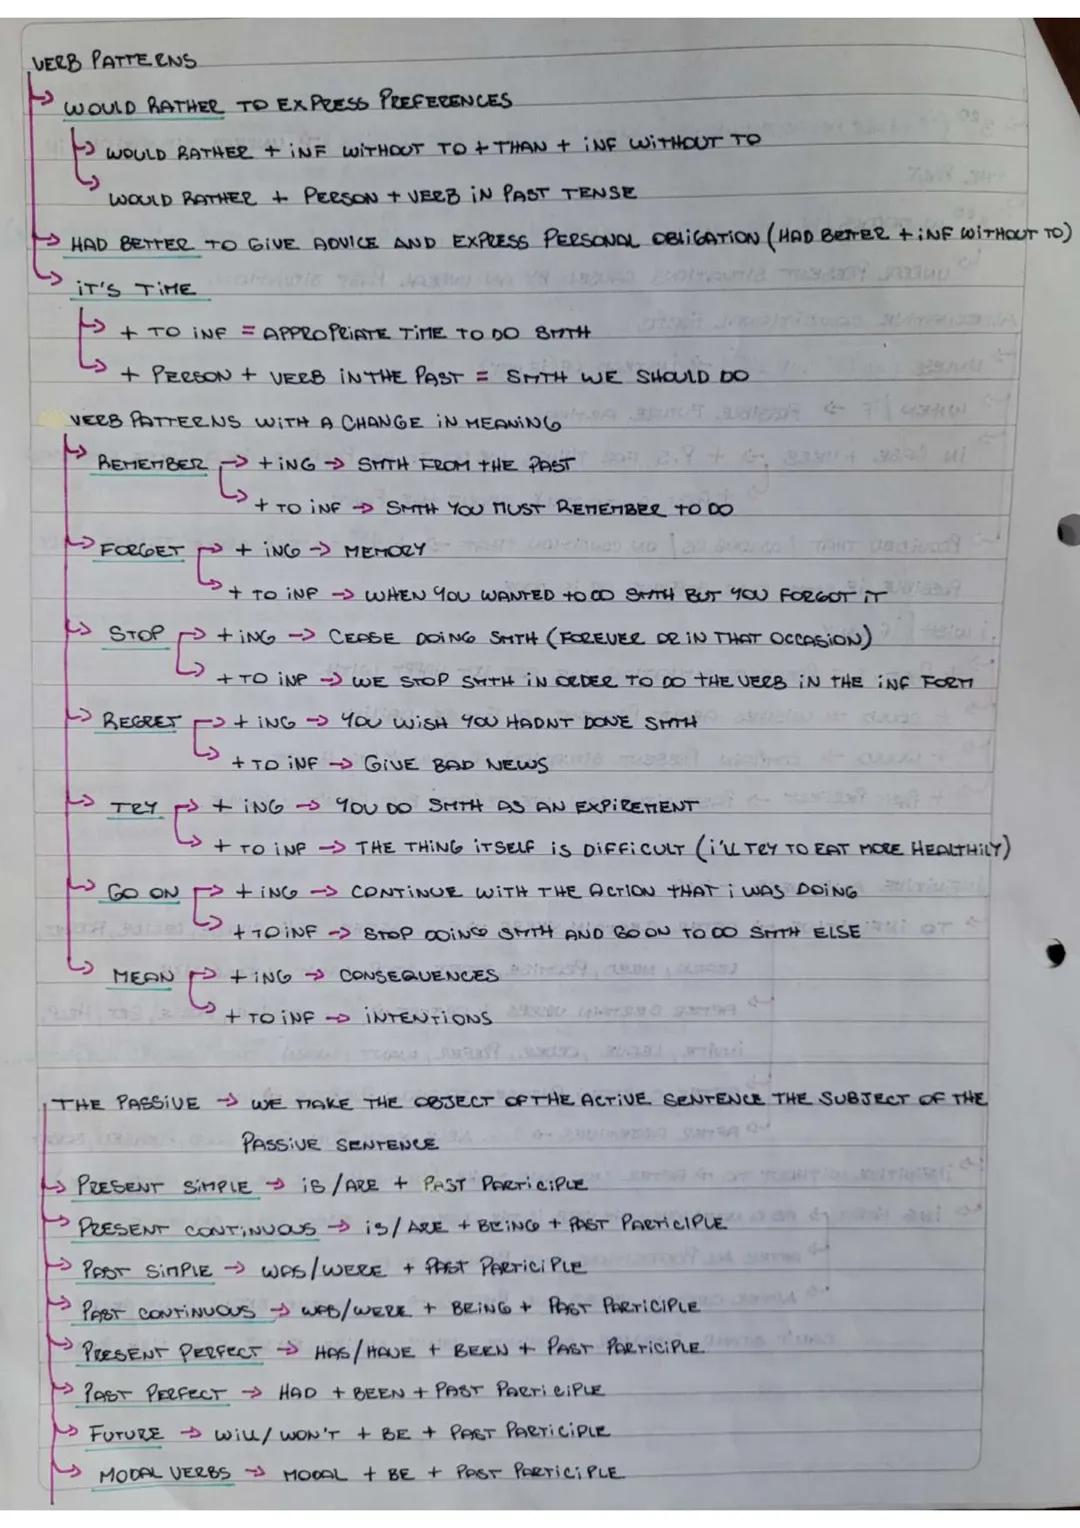 VERB PATTERNS
WOULD RATHER TO EXPRESS PREFERENCES
WOULD RATHER + INF WITHOUT TO + THAN + INF WITHOUT TO
WOULD RATHER + PERSON + VERB IN PAST TENSE
HAD BETTER TO GIVE ADVICE AND EXPRESS PERSONAL OBLIGATION (HAD BETTER + INF WITHOUT TO)
IT'S TIME
+ TO INF = APPROPRIATE TIME TO DO SMTH
+ PERSON + VERB IN THE PAST = SMTH WE SHOULD DO
VERB PATTERNS WITH A CHANGE IN MEANING
REMEMBER → + ING → SMTH FROM THE PAST
+ TO INF → SMTH YOU MUST REMEMBER TO DO
FORGET → + ING → MEMORY
+ TO INF → WHEN YOU WANTED TO DO SMTH BUT YOU FORGOT IT
STOP → + ING → CEASE DOING SMTH (FOREVER OR IN THAT OCCASION)
+ TO INF → WE STOP SMTH IN ORDER TO DO THE VERB IN THE ING FORM
REGRET → + ING → YOU WISH YOU HADNT DONE SMTH
+ TO INF → GIVE BAD NEWS
TRY → + ING → YOU DO SMTH AS AN EXPIREMENT
+ TO INF → THE THING ITSELF IS DIFFICULT (I'LL TRY TO EAT MORE HEALTHILY)
GO ON → + ING → CONTINUE WITH THE ACTION THAT I WAS DOING
+ TO INF → STOP DOING SMTH AND GO ON TO DO SMTH ELSE
MEAN → + ING → CONSEQUENCES
+ TO INF → INTENTIONS
THE PASSIVE → WE MAKE THE OBJECT OF THE ACTIVE SENTENCE THE SUBJECT OF THE
PASSIVE SENTENCE
PRESENT SIMPLE → IS/ARE + PAST PARTICIPLE
PRESENT CONTINUOUS → IS/ARE + BEING + PAST PARTICIPLE
PAST SIMPLE → WAS/WERE + PAST PARTICIPLE
PAST CONTINUOUS → WAS/WERE + BEING + PAST PARTICIPLE
PRESENT PERFECT → HAS/HAVE + BEEN + PAST PARTICIPLE
PAST PERFECT → HAD + BEEN + PAST PARTICIPLE
FUTURE → WILL/WON'T + BE + PAST PARTICIPLE
MODAL VERBS → MODAL + BE + PAST PARTICIPLE